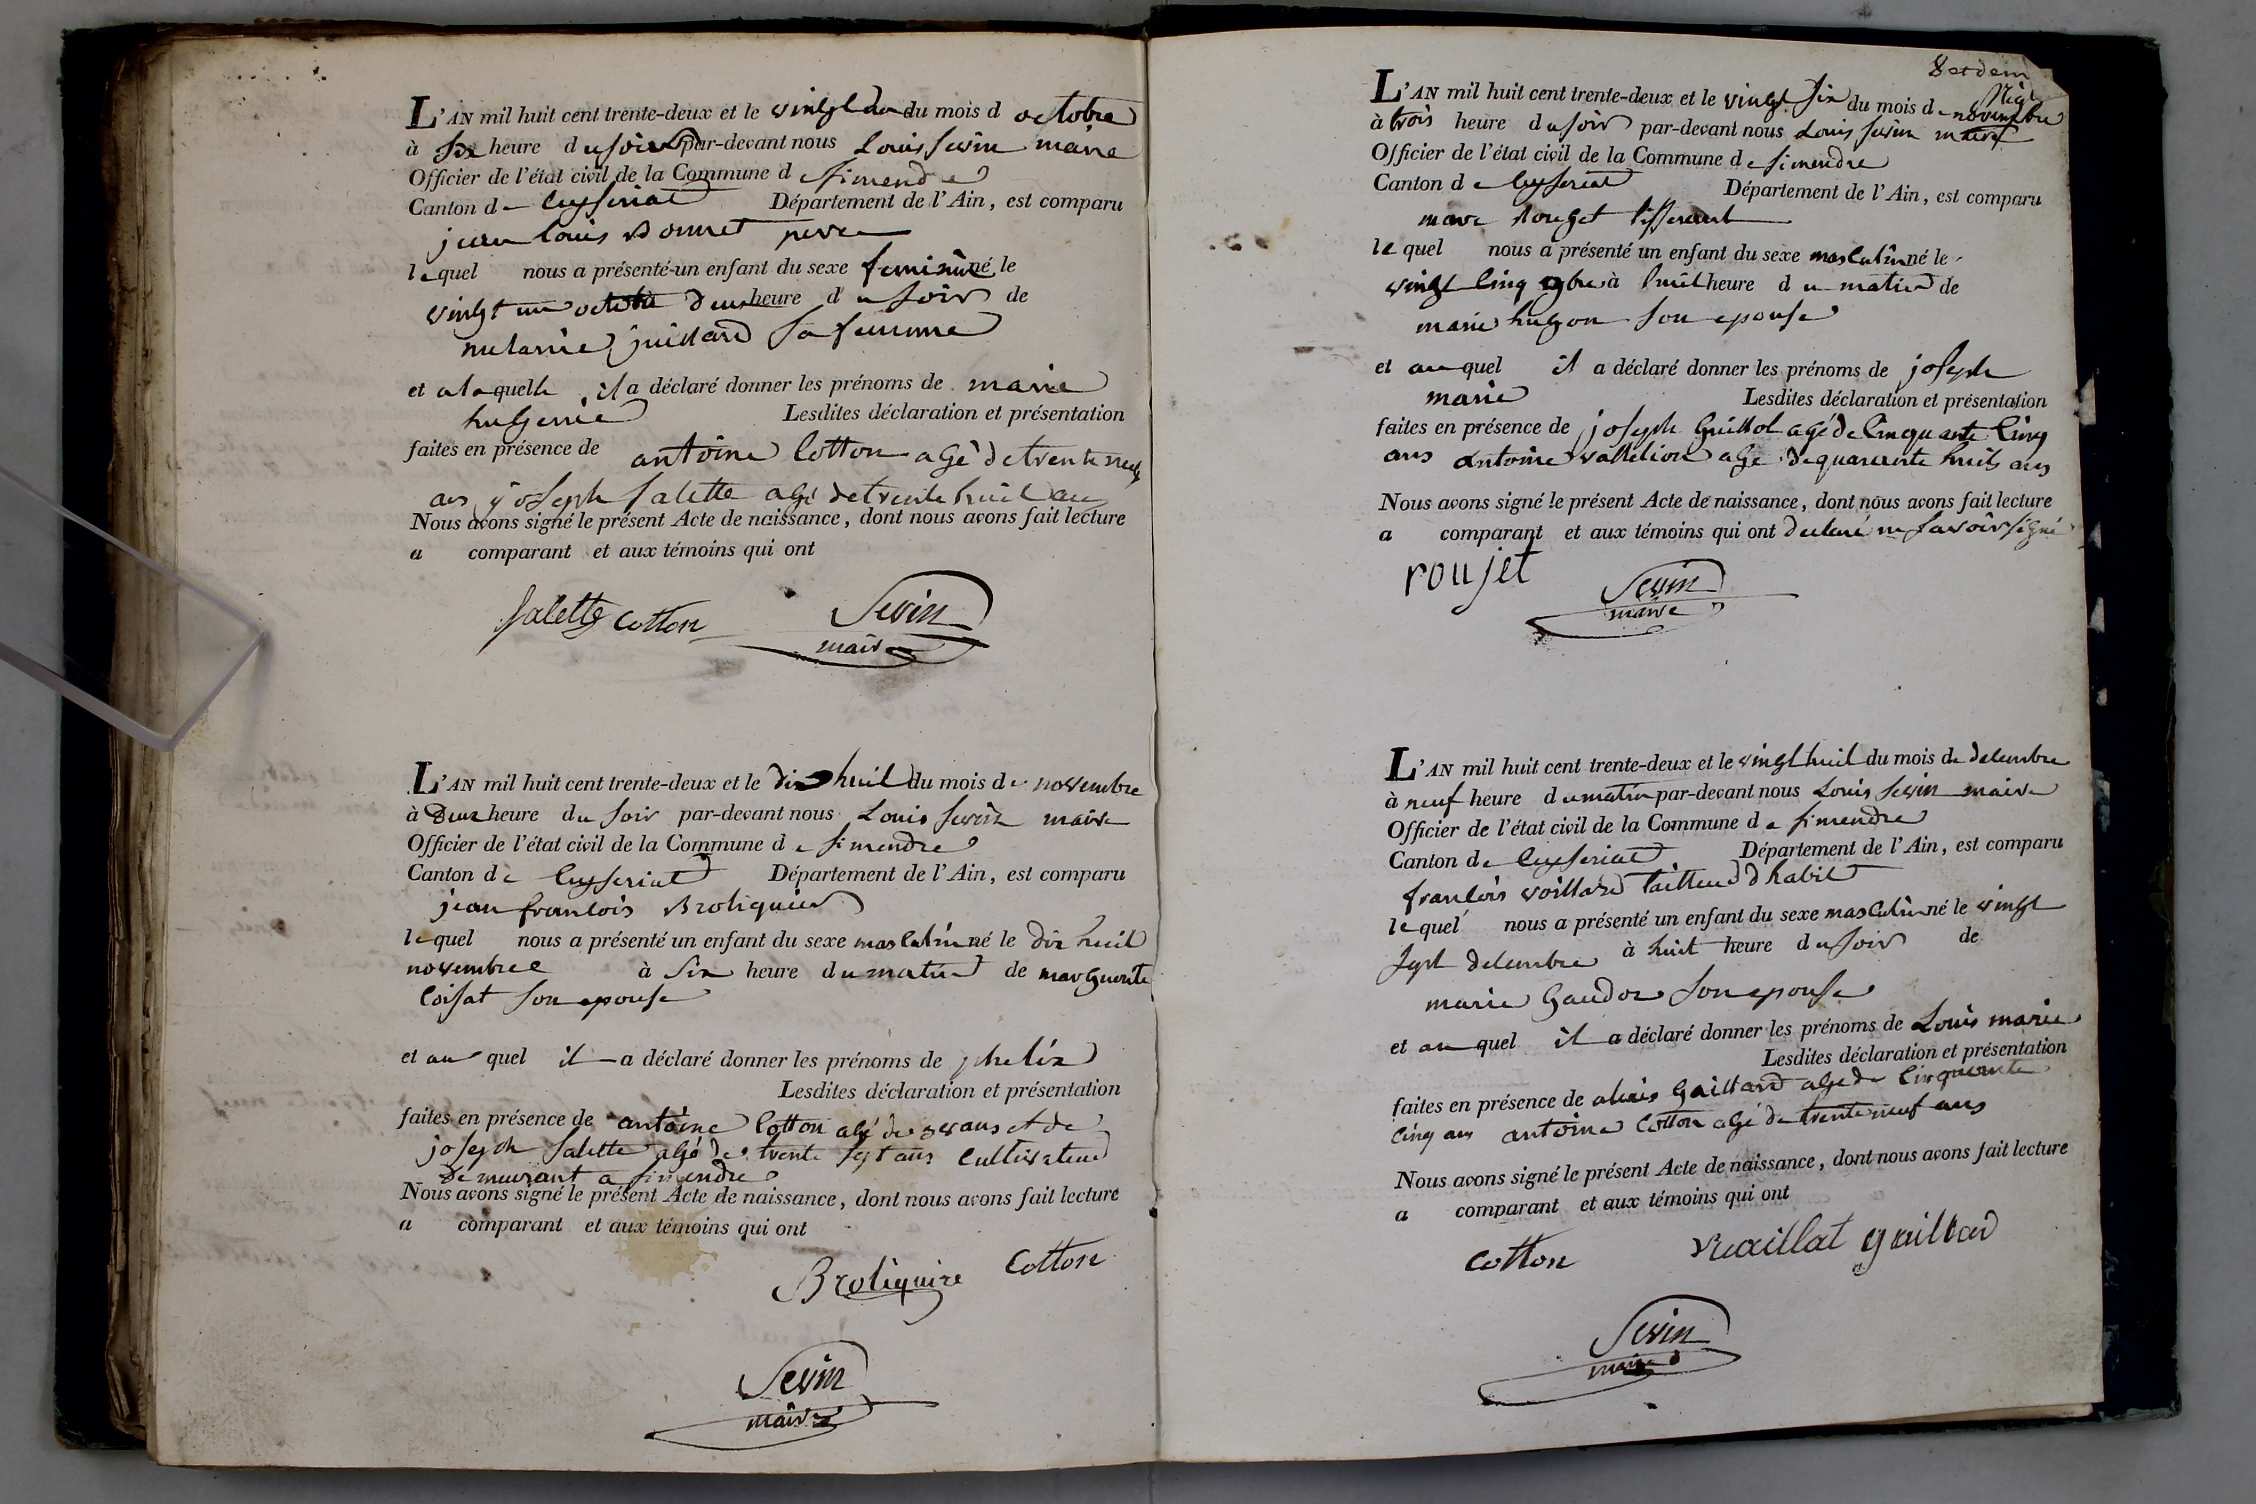 L'AN mil huit cent trente-deux et le vingt du mois d octobre
à Six heure du soir par-devant nous Louis Sevin maire
Officier de l'état civil de la Commune de Simendre
Canton de Ceyseriat Département de l'Ain, est comparu
jean Louis Bonnet
lequel nous a présenté un enfant du sexe feminin né le
vingt un octobre deux heure du soir de
juillard sa femme
et a laquelle il a déclaré donner les prénoms de marie
hugenie Lesdites déclaration et présentation
faites en présence de antoine Cotton agé de trente neuf
ans joseph Salette agé de trente huit ans
Nous avons signé le présent Acte de naissance, dont nous avons fait lecture
a comparant et aux témoins qui ont
Salette Cotton Sevin
maire
L'AN mil huit cent trente-deux et le dix huit du mois de novembre
à Deux heure du soir par-devant nous Louis Sevin maire
Officier de l'état civil de la Commune de Simendre
Canton de Ceyseriat Département de l'Ain, est comparu
jean francois Broliquier
lequel nous a présenté un enfant du sexe masculin né le dix huit
novembre à Six heure du matin de marguerite
Coisat son epouse
et au quel il a déclaré donner les prénoms de phelix
Lesdites déclaration et présentation
faites en présence de antoine Cotton agé de ans et de
joseph Salette agé de trente sept ans Cultivateur
Demeurant a Simendre
Nous avons signé le présent Acte de naissance, dont nous avons fait lecture
a comparant et aux témoins qui ont
Broliquire Cotton
Sevin
maire
8 et dem
L'AN mil huit cent trente-deux et le vingt Six du mois de novembre
à trois heure du soir par-devant nous Louis Sevin maire
Officier de l'état civil de la Commune de Simendre
Canton de Ceyseriat Département de l'Ain, est comparu
marc Rouget tisserant
lequel nous a présenté un enfant du sexe masculin né le
vingt Cinq 9bre à huit heure du matin de
marie hugon son epouse
et au quel il a déclaré donner les prénoms de joseph
marie Lesdites déclaration et présentation
faites en présence de joseph Guillot agé de Cinquante Cinq
ans antoine agé de quarante huit ans
Nous avons signé le présent Acte de naissance, dont nous avons fait lecture
a comparant et aux témoins qui ont declaré ne savoir signé
roujet Sevin
maire
L'AN mil huit cent trente-deux et le vingt huit du mois de decembre
à neuf heure du matin par-devant nous Louis Sevin maire
Officier de l'état civil de la Commune de Simendre
Canton de Ceyseriat Département de l'Ain, est comparu
francois voillard tailleur d habit
lequel nous a présenté un enfant du sexe masculin né le vingt
sept decembre à huit heure du soir de
marie Gaudoz son epouse
et au quel il a déclaré donner les prénoms de Louis marie
Lesdites déclaration et présentation
faites en présence de alexis Gaillard agé de Cinquante
Cinq ans antoine Cotton agé de trente neuf ans
Nous avons signé le présent Acte de naissance, dont nous avons fait lecture
a comparant et aux témoins qui ont
Cotton Vuaillat gaillard
Sevin
maire